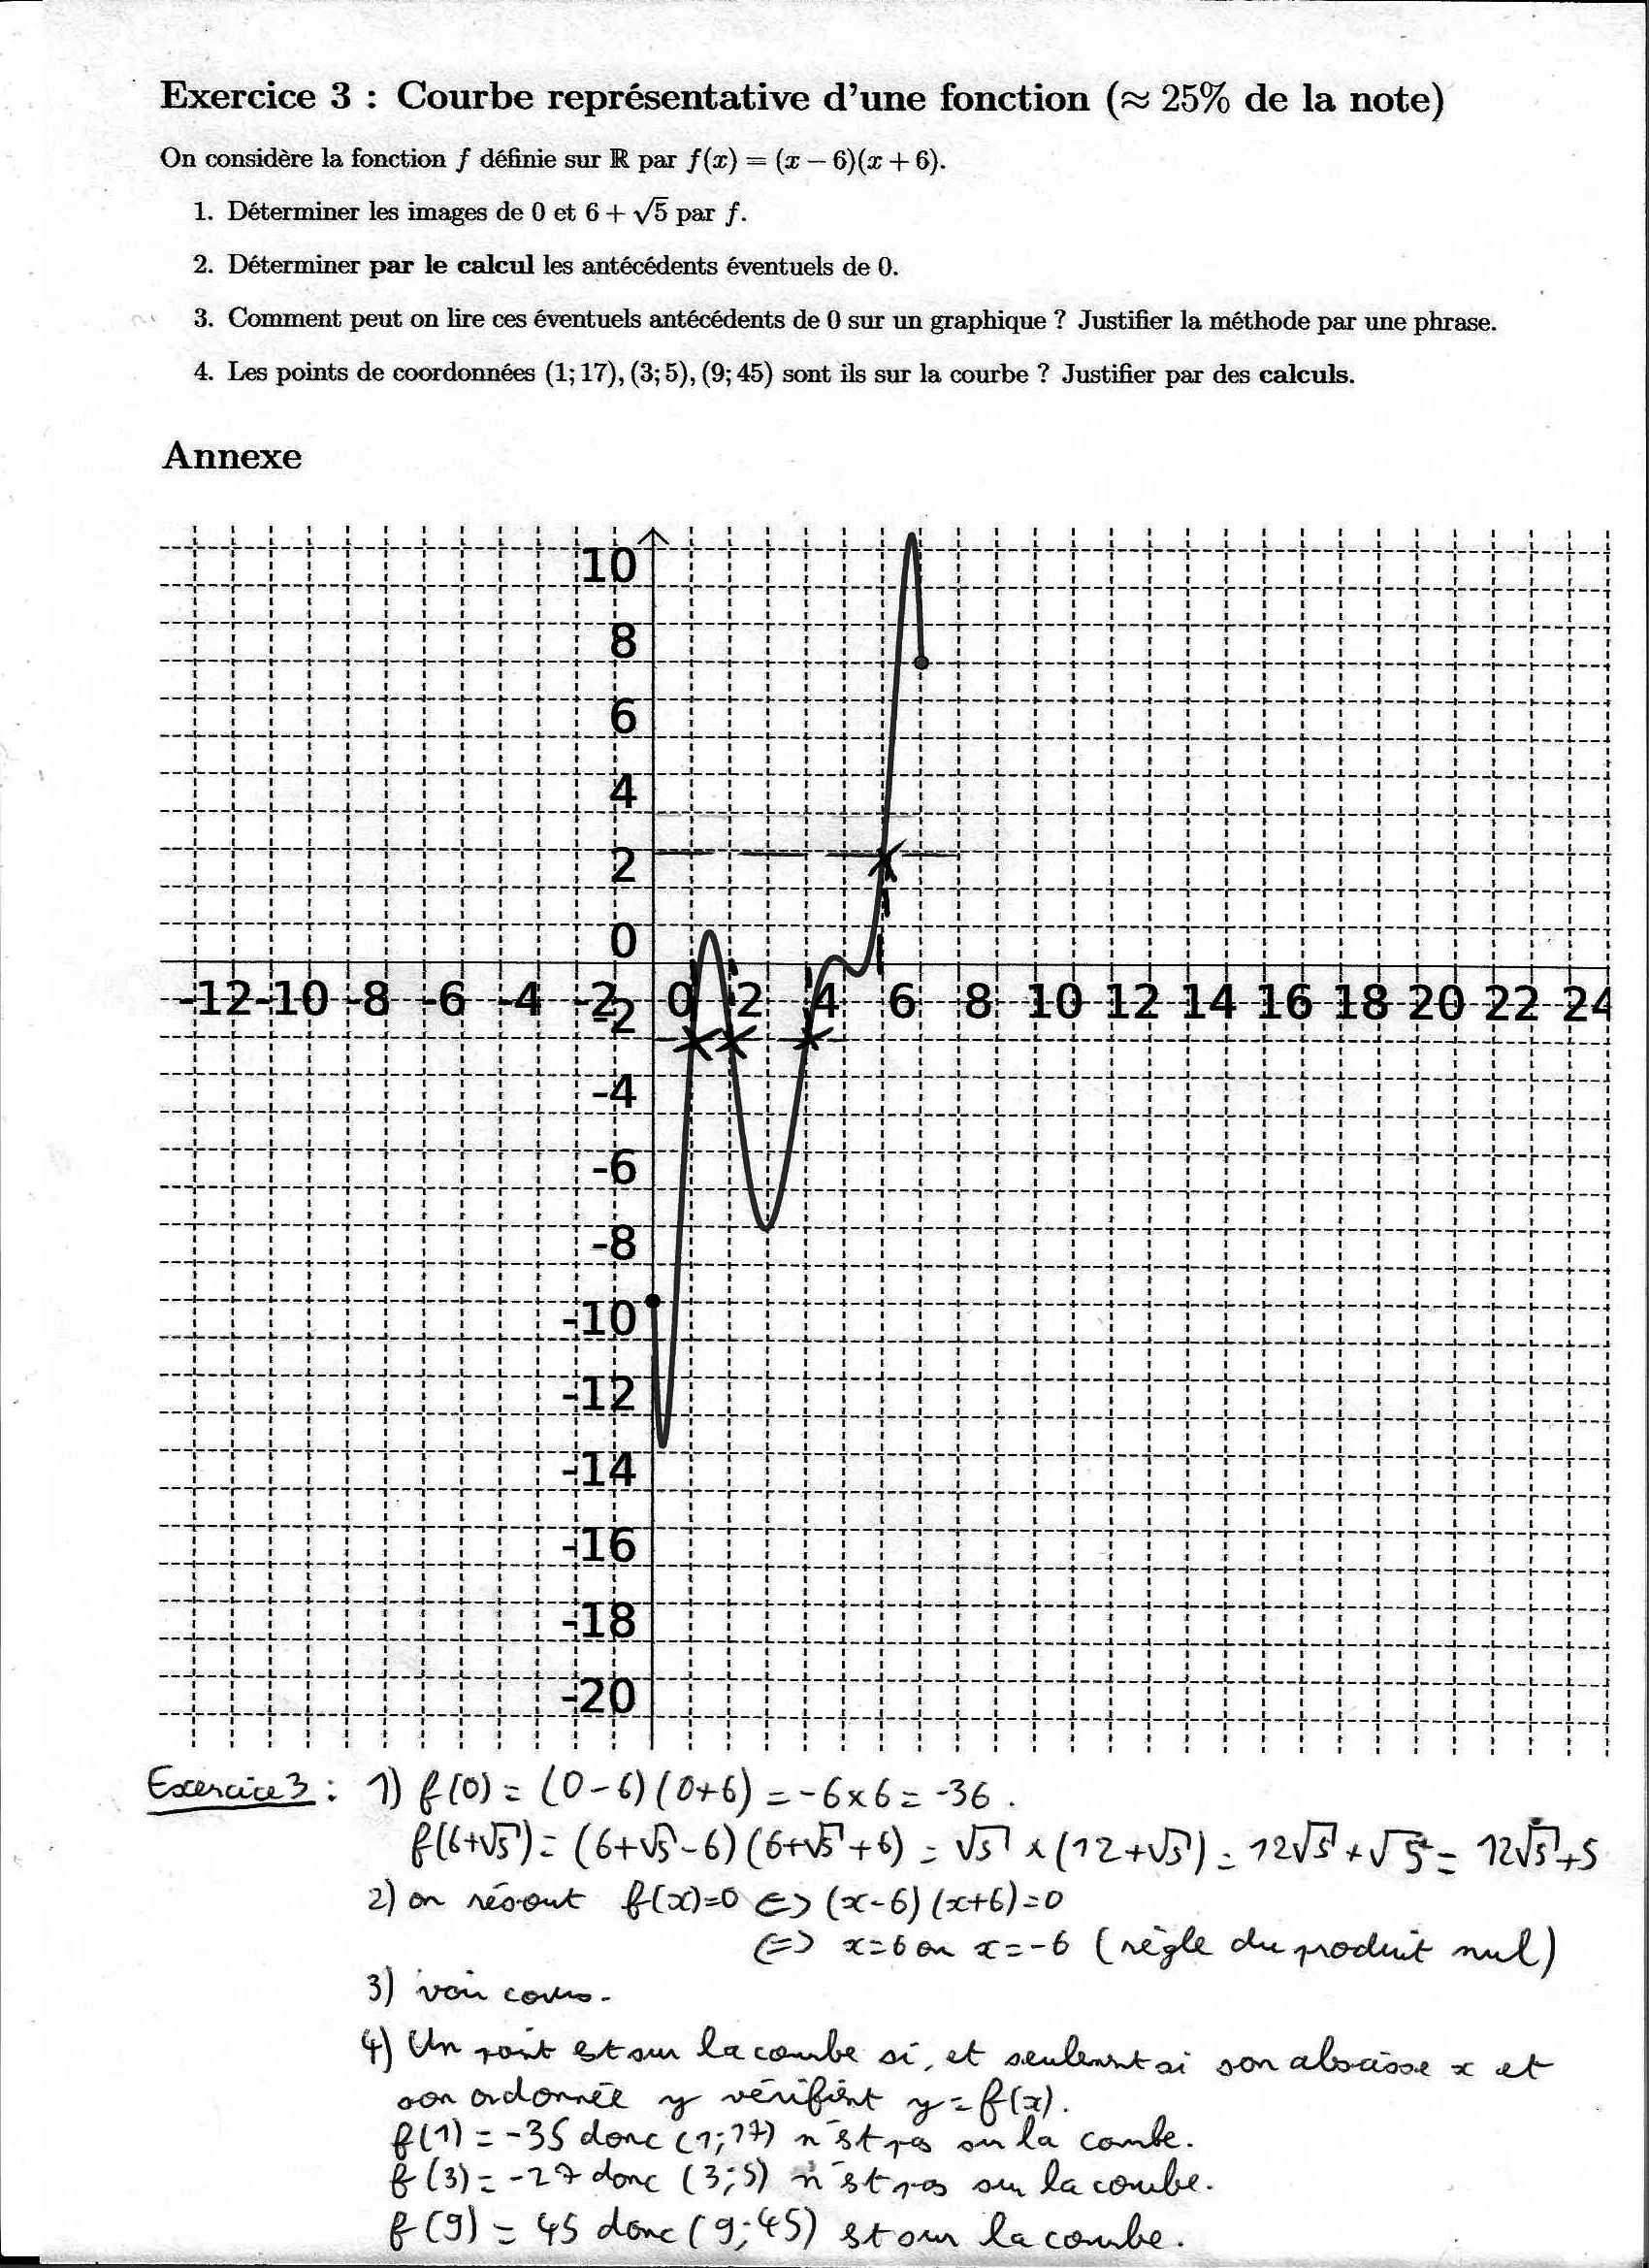 Exercice 3 : Courbe représentative d'une fonction (≈ 25% de la note)
On considère la fonction f définie sur ℝ par f(x) = (x − 6)(x + 6).
1. Déterminer les images de 0 et 6 + √5 par f.
2. Déterminer par le calcul les antécédents éventuels de 0.
3. Comment peut on lire ces éventuels antécédents de 0 sur un graphique ? Justifier la méthode par une phrase.
4. Les points de coordonnées (1; 17), (3; 5), (9; 45) sont ils sur la courbe ? Justifier par des calculs.
Annexe
10
8
6
4
2
0
-12 -10 -8 -6 -4 -2 0 2 4 6 8 10 12 14 16 18 20 22 24
-2
-4
-6
-8
-10
-12
-14
-16
-18
-20
Exercice 3 : 1) f(0) = (0-6)(0+6) = -6×6 = -36.
f(6+√5) = (6+√5-6)(6+√5+6) = √5 × (12+√5) = 12√5 + √5² = 12√5+5
2) on résout f(x)=0 <=> (x-6)(x+6)=0
<=> x=6 ou x=-6 (règle du produit nul)
3) voir cours.
4) Un point est sur la courbe si, et seulement si son abscisse x et
son ordonnée y vérifient y = f(x).
f(1) = -35 donc (1;17) n'est pas sur la courbe.
f(3) = -27 donc (3;5) n'est pas sur la courbe.
f(9) = 45 donc (9;45) est sur la courbe.